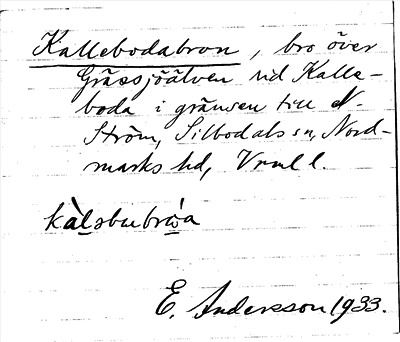 Kallebodabron, bro över
Grässjöälven vid Kalle-
boda i gränsen till N.
Ström, Silbodals sn, Nord-
marks hd, Vrml l.
E. Andersson 1933.